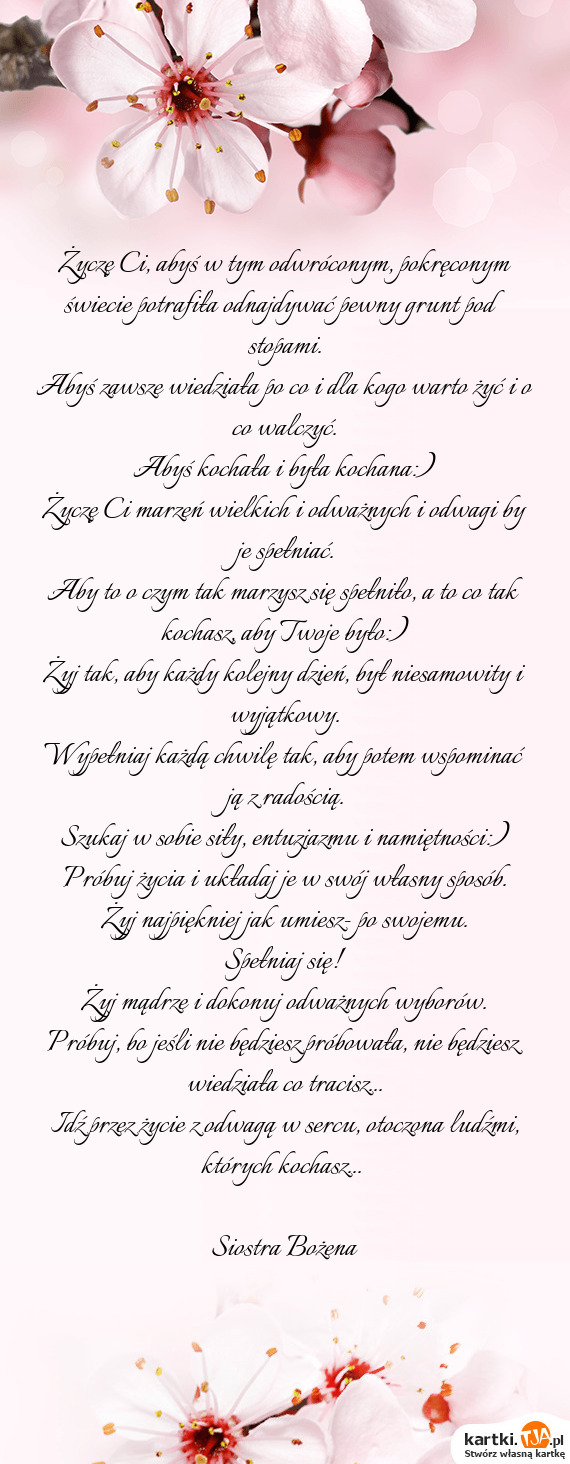 Życzę Ci, abyś w tym odwróconym, pokręconym
świecie potrafiła odnajdywać pewny grunt pod
stopami.
Abyś zawsze wiedziała po co i dla kogo warto żyć i o
co walczyć.
Abyś kochała i była kochana:)
Życzę Ci marzeń wielkich i odważnych i odwagi by
je spełniać.
Aby to o czym tak marzysz się spełniło, a to co tak
kochasz, aby Twoje było:)
Żyj tak, aby każdy kolejny dzień, był niesamowity i
wyjątkowy.
Wypełniaj każdą chwilę tak, aby potem wspominać
ją z radością.
Szukaj w sobie siły, entuzjazmu i namiętności:)
Próbuj życia i układaj je w swój własny sposób.
Żyj najpiękniej jak umiesz- po swojemu.
Spełniaj się!
Żyj mądrze i dokonuj odważnych wyborów.
Próbuj, bo jeśli nie będziesz próbowała, nie będziesz
wiedziała co tracisz...
Idź przez życie z odwagą w sercu, otoczona ludźmi,
których kochasz...
Siostra Bożena
kartki.TJA.pl
Stwórz własną kartkę